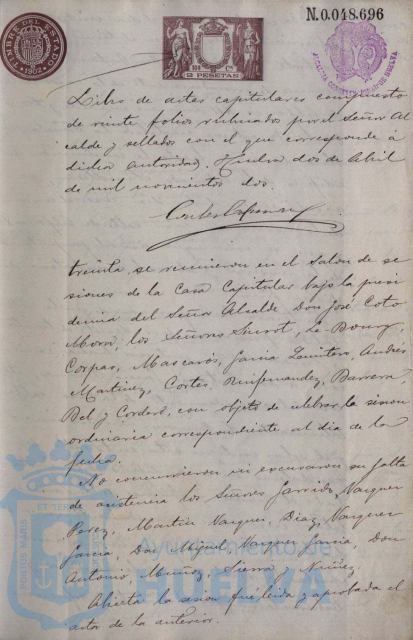 N.0.048.696
TIMBRE DEL ESTADO
1902
100 Cs
2 PESETAS
ALCALDIA CONSTITUCIONAL DE HUELVA
Libro de actas capitulares compuesto
de veinte folios rubricados por el Señor Al
calde y sellados con el que corresponde á
dicha autoridad. Huelva dos de Abril
de mil novecientos dos.
treinta, se reunieron en el Salon de se
siones de la Casa Capitular bajo la presi
dencia del Señor Alcalde Don José Coto
Mora, los Señores Siurot, Le-Bourg,
Corpas, Mascarós, Garcia Andrés
Martinez, Cortes, Ruifernandez, Barrera,
Bel y Cordero, con objeto de celebrar la sesion
ordinaria correspondiente al dia de la
fecha.
No concurrieron ni escusaron su falta
de asistencia los Señores Garrido, Vazquez
Perez, Martin Vazquez, Diaz, Vazquez
Garcia, Don Miguel, Vazquez Garcia, Don
Antonio, Muñoz, Sierra y Nuñez.
Abierta la sesion fue leida y aprobada el
acta de la anterior.
PORTUS MARIS ET TERRAE
Ayuntamiento de
HUELVA